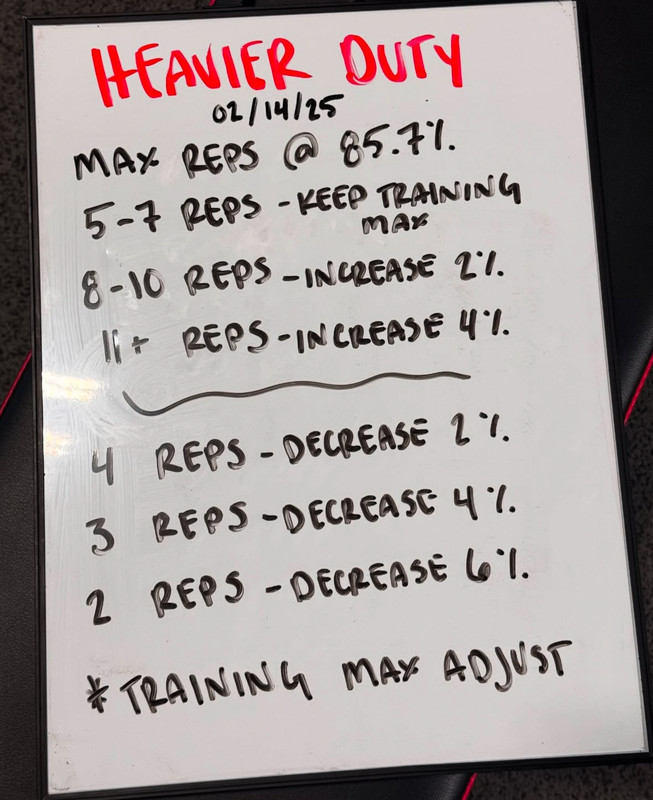 HEAVIER DUTY
02/14/25
MAX REPS @ 85.7%.
5-7 REPS - KEEP TRAINING
MAX
8-10 REPS - INCREASE 2%.
11+ REPS - INCREASE 4%.
4 REPS - DECREASE 2%.
3 REPS - DECREASE 4%.
2 REPS - DECREASE 6%.
* TRAINING MAX ADJUST